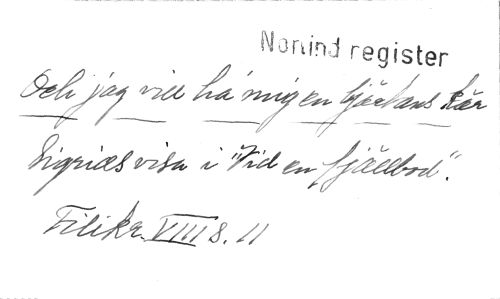 Nonind register
Och jag vill ha' mig en hjärtans kär
Sigrids visa i "Vid en fjällbod".
Filikr. VIII s. 11